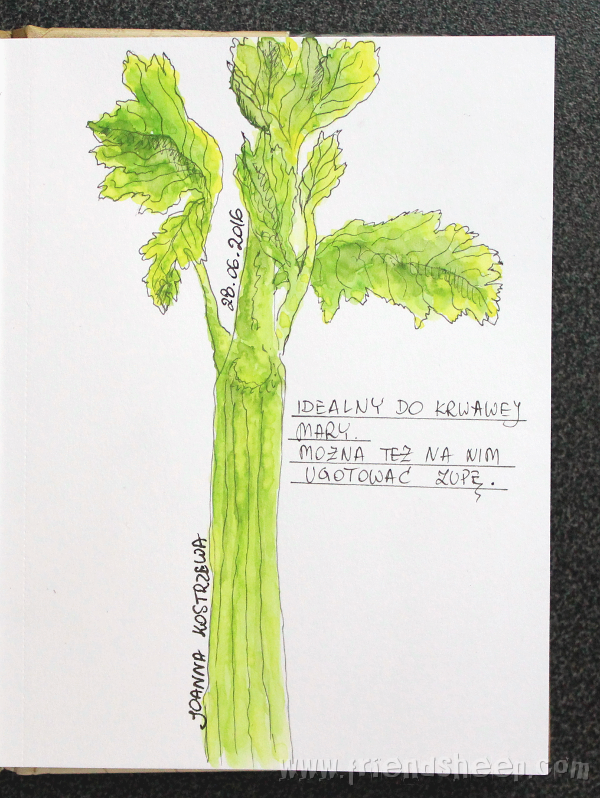 28.06.2016
IDEALNY DO KRWAWEJ
MARY.
MOŻNA TEŻ NA NIM
UGOTOWAĆ ZUPĘ.
JOANNA KOSTRZEWA
www.friendsheep.com